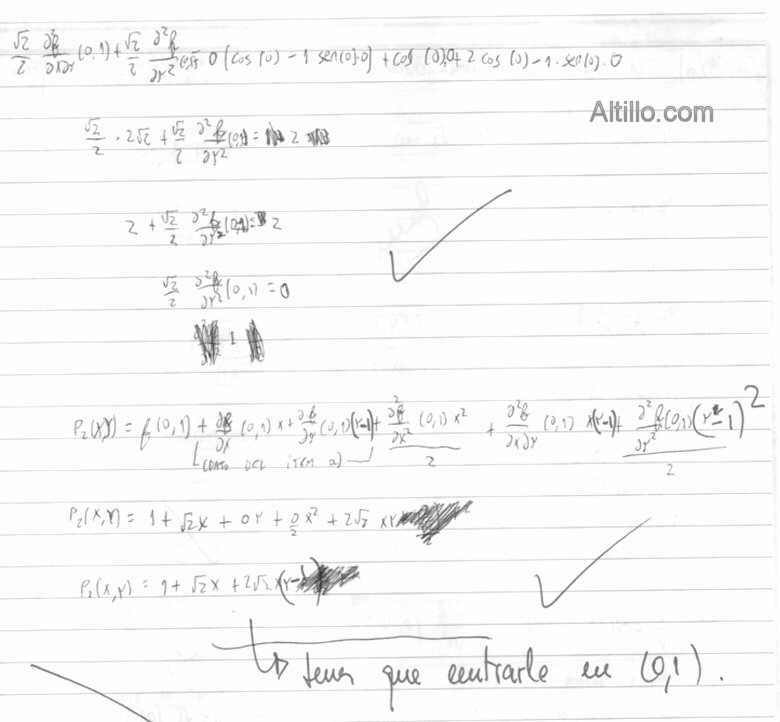 √2/2 ∂²f/∂x∂y (0,1) + √2/2 ∂²f/∂y² 0 (cos (0) - 1 sen(0).0) + cos (0).0 + 2 cos (0) - 1. sen(0). 0
Altillo.com
√2/2 . 2√2 + √2/2 ∂²f/∂y² (0,1) = 2
2 + √2/2 ∂²f/∂y² (0,1) = 2
√2/2 ∂²f/∂y² (0,1) = 0
P₂(X,Y) = f(0,1) + ∂f/∂x (0,1) x + ∂f/∂y (0,1)(y-1) + ∂²f/∂x² (0,1) x²/2 + ∂²f/∂x∂y (0,1) x(y-1) + ∂²f/∂y² (0,1)(y-1)²/2
DEL ITEM a)
P₂(X,Y) = 1 + √2x + 0Y + 0/2 x² + 2√2 XY
P₂(X,Y) = 1 + √2x + 2√2 x(y-1)
↳ tenes que centrarlo en (0,1).